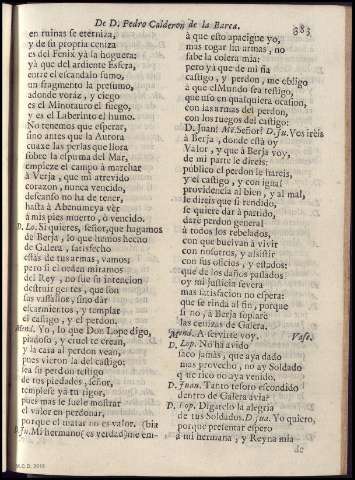 De D. Pedro Calderon de la Barca.
383
en ruinas se eterniza,
y de su propria ceniza
es del Fenix yà la hoguera:
yà que del ardiente Esfera,
entre el escandalo sumo,
un fragmento la presumo,
adonde voràz, y ciego
es el Minotauro el fuego,
y es el Laberinto el humo.
No tenemos que esperar,
sino antes que la Aurora
cuaxe las perlas que llora
sobre la espuma del Mar,
empieze el campo à marchar
à Verja, que mi atrevido
corazon, nunca vencido,
descanso no ha de tener,
hasta à Abenumeya vèr
à mis pies muerto, ò vencido.
D. Lo. Si quieres, señor, que hagamos
de Berja, lo que hemos hecho
de Galera, satisfecho
estàs de tus armas, vamos;
pero si el orden miramos
del Rey, no fue su intencion
destruir gentes, que son
sus vassallos, sino dàr
escarmientos, y templar
el castigo, y el perdon.
Mend. Yo, lo que Don Lope digo,
piadoso, y cruel te crean,
y la casa al perdon vean,
pues vieron la del castigo:
sea su perdon testigo
de tus piedades, señor,
templese yà tu rigor,
pues mas se suele mostrar
el valor en perdonar,
porque el matar no es valor. (bia
D. Ju. Mi hermano (es verdad) me em-
à que esto apacigue yo,
mas rogar sin armas, no
sabe la colera mia:
pero yà que de mi fia
castigo, y perdon, me obligo
à que el Mundo sea testigo,
que uso en qualquiera ocasion,
con las armas del perdon,
con los ruegos del castigo:
D. Juan! Mē. Señor! D. Ju. Vos ireis
à Berja, donde està oy
Valor, y que à Berja voy,
de mi parte le direis:
publico el perdon le hareis,
y el castigo, y con igual
providencia al bien, y al mal,
le direis que si rendido,
se quiere dàr à partido,
darè perdon general
à todos los rebelados,
con que buelvan à vivir
con nosotros, y assistir
con sus oficios, y estados:
que de los daños passados
oy mi justicia severa
mas satisfacion no espera:
que se rinda al fin, porque
si no, à Berja soplarè
las cenizas de Galera.
Mend. A servirte voy. Vase.
D. Lop. No ha avido
saco jamàs, que aya dado
mas provecho, no ay Soldado
que rico no aya venido.
D. Juan. Tanto tesoro escondido
dentro de Galera avia?
D. Lop. Digatelo la alegria
de tus Soldados. D. Jua. Yo quiero,
porque presentar espero
à mi hermana, y Reyna mia
de